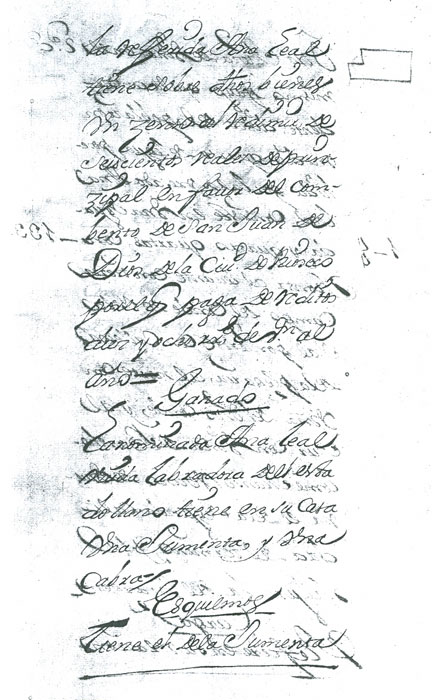 la referida Ana Leal
tiene sobre otros bienes
un zenso al redimir de
seiscientos reales de prin
zipal en favor del com-
bento de San Juan de
Dios de la Ciu.d de
por los q.e paga de redito
diez y ocho r.s de v.n al
año =
Ganado
La nominada Ana Leal
viuda labradora del esta
do llano tiene en su casa
una Jumenta, y una
Cabra
Esquilmos
Tiene el de la Jumenta